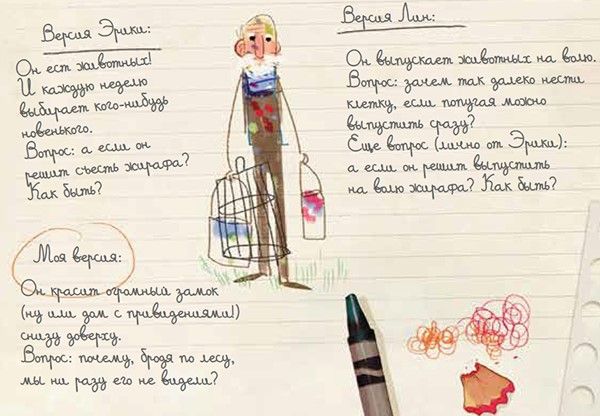 Версия Эрики:
Он ест животных!
И каждую неделю
выбирает кого-нибудь
новенького.
Вопрос: а если он
решит съесть жирафа?
Как быть?
Версия Лин:
Он выпускает животных на волю.
Вопрос: зачем так далеко нести
клетку, если попугая можно
выпустить сразу?
Еще вопрос (лично от Эрики):
а если он решит выпустить
на волю жирафа? Как быть?
Моя версия:
Он красит огромный замок
(ну или дом с привидениями!)
снизу доверху.
Вопрос: почему, бродя по лесу,
мы ни разу его не видели?